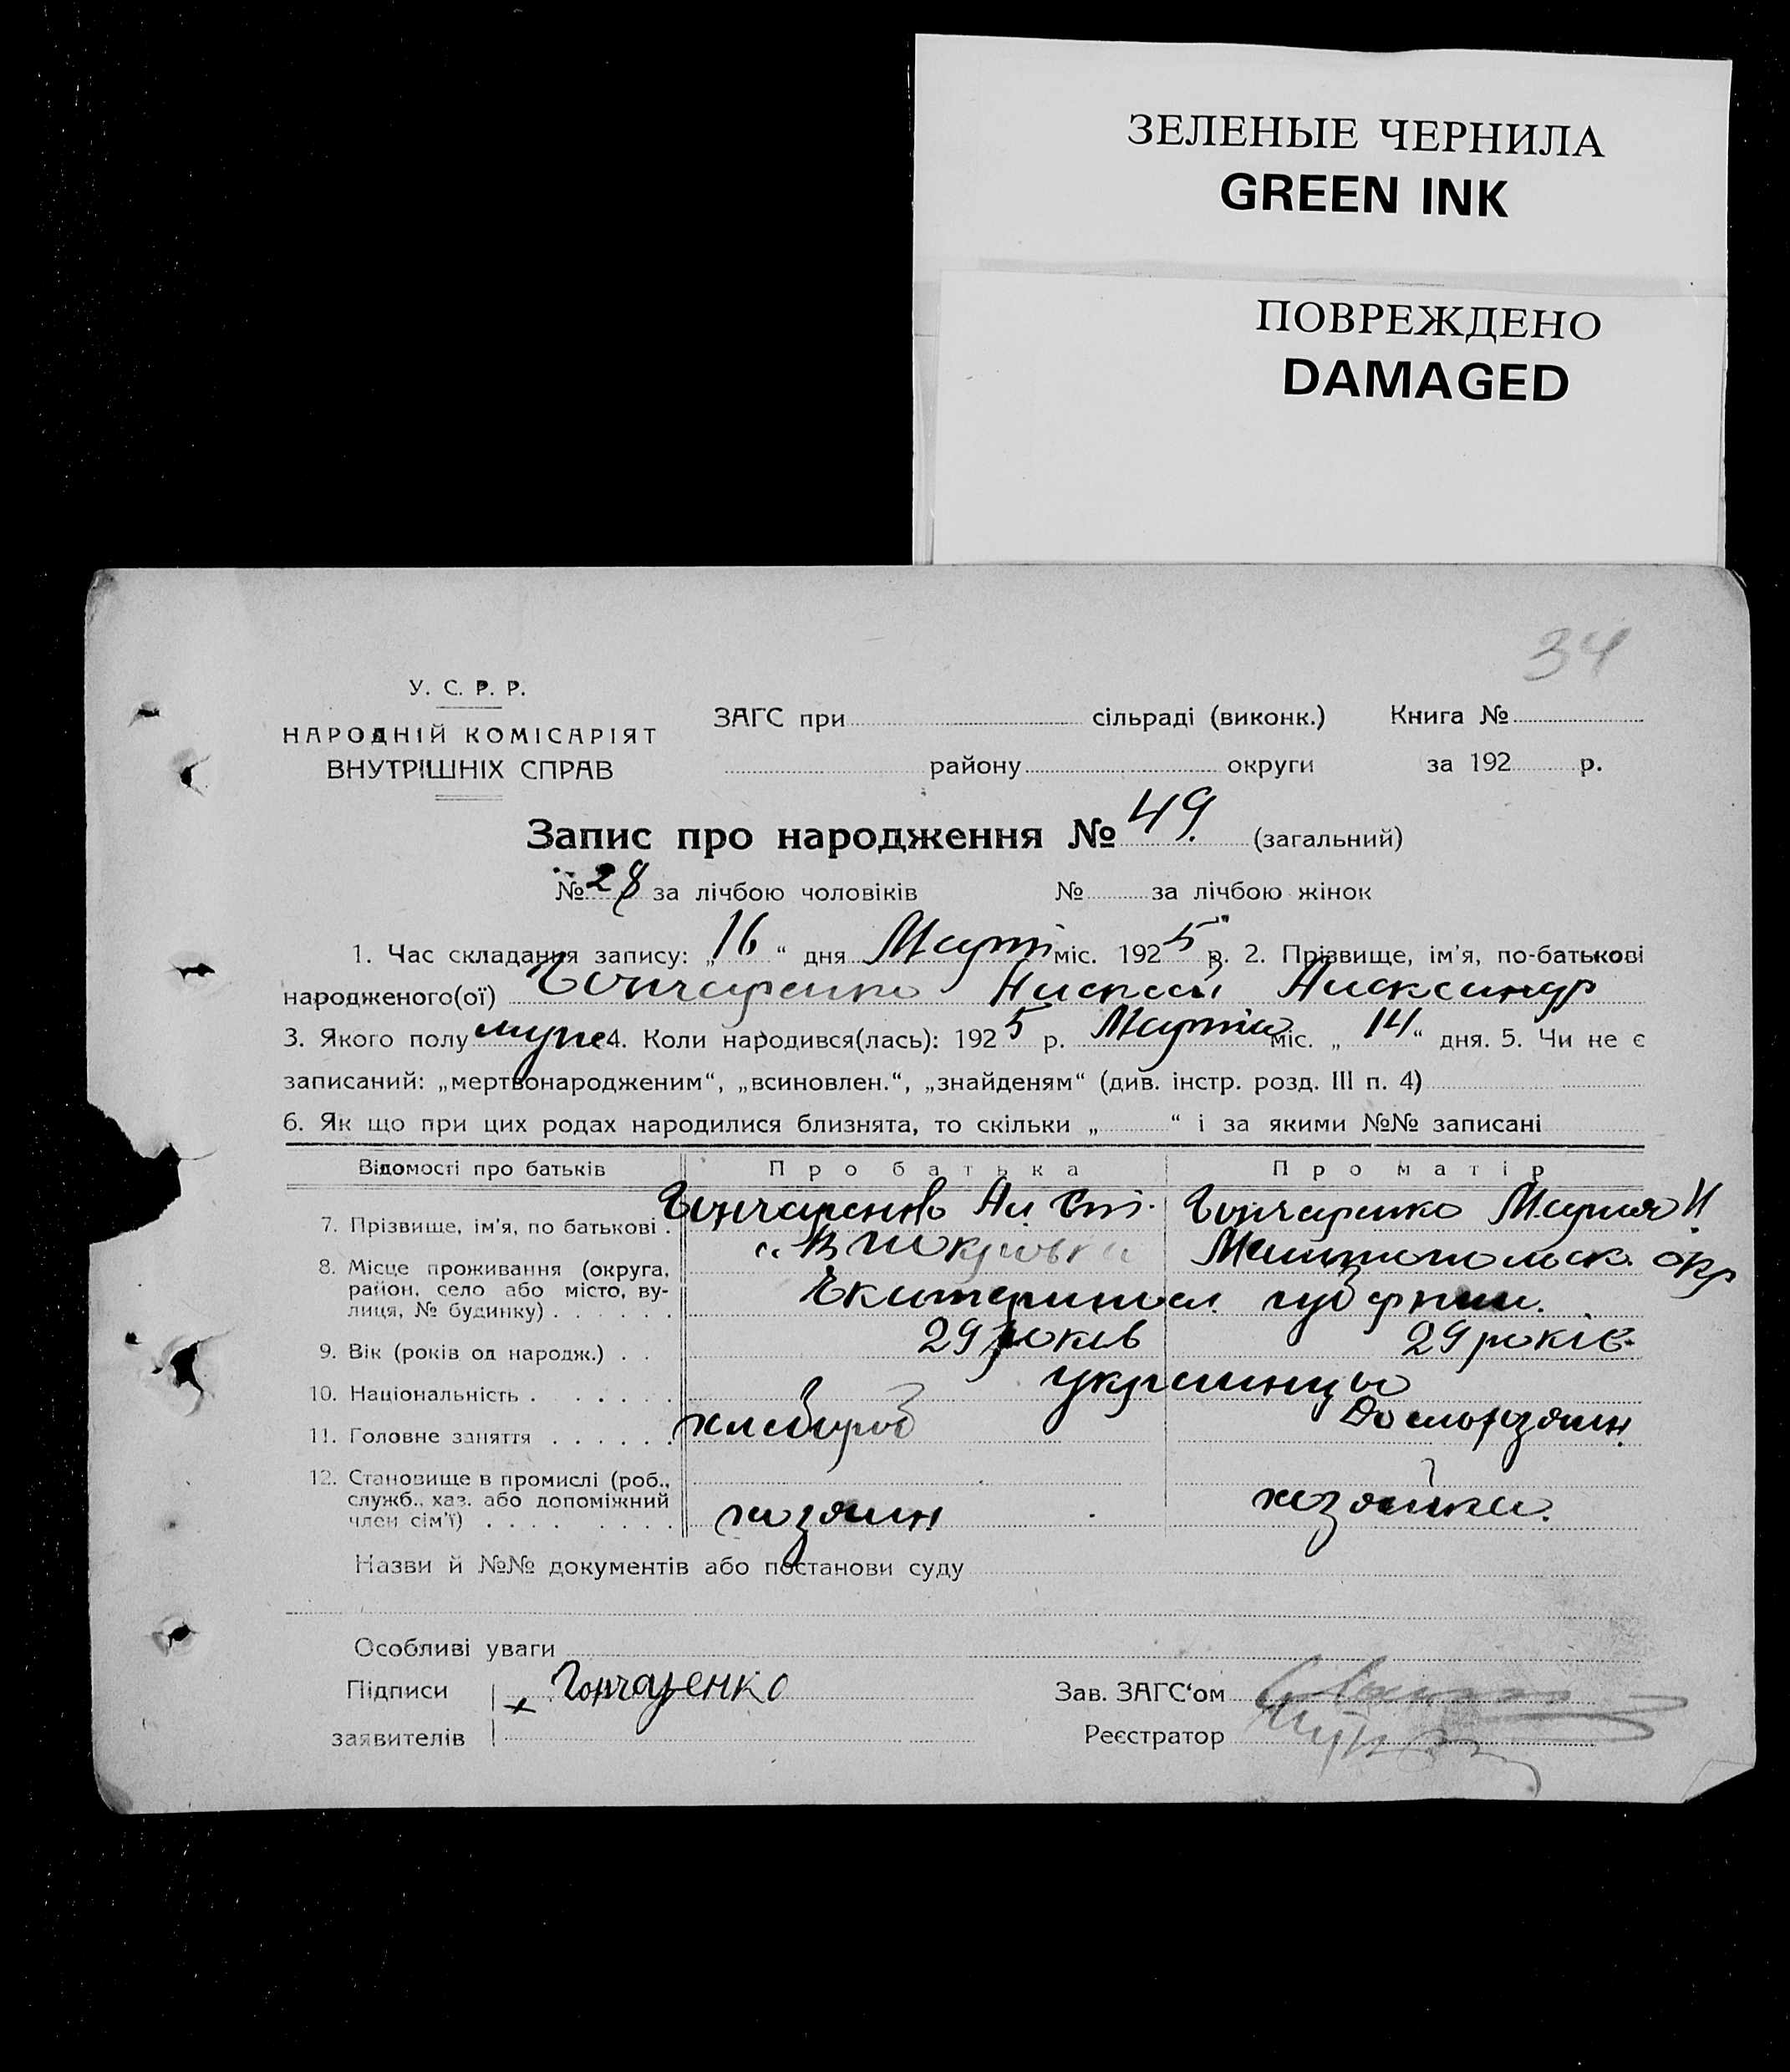 ЗЕЛЕНЫЕ ЧЕРНИЛА
GREEN INK
ПОВРЕЖДЕНО
DAMAGED
34
У. С. Р. Р.
НАРОДНІЙ КОМІСАРІЯТ
ВНУТРІШНІХ СПРАВ
ЗАГС при сільраді (виконк.) Книга №
району округи за 192 р.
Запис про народження № 49. (загальний)
№ 28 за лічбою чоловіків № за лічбою жінок
1. Час складання запису: „16“ дня Март міс. 1925 р. 2. Прізвище, ім'я, по-батькові
народженого(ої) Гончаренко Александр
3. Якого полу муж 4. Коли народився(лась): 1925 р. Марта міс. „14“ дня. 5. Чи не є
записаний: „мертвонародженим“, „всиновлен.“, „знайденям“ (див. інстр. розд. III п. 4)
6. Як що при цих родах народилися близнята, то скільки „ “ і за якими №№ записані
Відомості про батьків Про батька Про матір
7. Прізвище, ім'я, по батькові . Гончаренко Ал. Гончаренко Мария И.
8. Місце проживання (округа, район, село або місто, вулиця, № будинку) . . . . . . В Покровка Мелитопольск. окр
Екатериносл. губернии.
9. Вік (років од народж.) . . 29 років 29 років.
10. Національність . . . . . . украинцы
11. Головне заняття . . . . . . хлебороб Домохозяин
12. Становище в промислі (роб., служб., хаз. або допоміжний член сім'ї) . . . . . . . . хозяин хозяйка.
Назви й №№ документів або постанови суду
Особливі уваги
Підписи × Гончаренко Зав. ЗАГС‘ом
заявителів Реєстратор